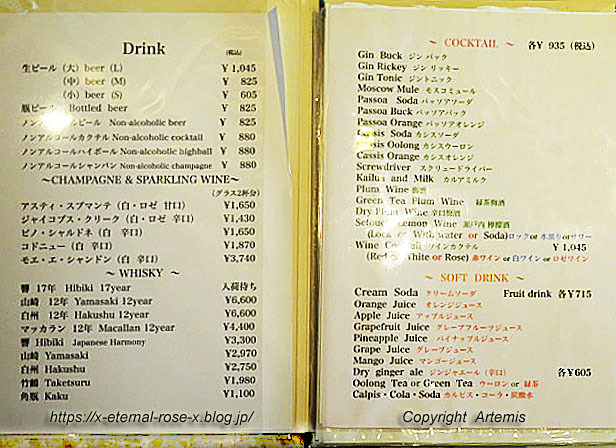 Drink
(税込)
生ビール (大) beer (L) ¥1,045
(中) beer (M) ¥ 825
(小) beer (S) ¥ 605
瓶ビール Bottled beer ¥ 825
ノンアルコールビール Non-alcoholic beer ¥ 825
ノンアルコールカクテル Non-alcoholic cocktail ¥ 880
ノンアルコールハイボール Non-alcoholic highball ¥ 880
ノンアルコールシャンパン Non-alcoholic champagne ¥ 880
~CHAMPAGNE & SPARKLING WINE~
(グラス2杯分)
アスティ・スプマンテ (白・ロゼ 甘口) ¥1,650
ジャイコブス・クリーク (白・ロゼ 辛口) ¥1,430
ピノ・シャルドネ (白 辛口) ¥1,650
コドニュー (白 辛口) ¥1,870
モエ・エ・シャンドン (白 辛口) ¥3,740
~ WHISKY ~
響 17年 Hibiki 17year 入荷待ち
山崎 12年 Yamasaki 12year ¥6,600
白州 12年 Hakushu 12year ¥6,600
マッカラン 12年 Macallan 12year ¥4,400
響 Hibiki Japanese Harmony ¥3,300
山崎 Yamasaki ¥2,970
白州 Hakushu ¥2,750
竹鶴 Taketsuru ¥1,980
角瓶 Kaku ¥1,100
https://x-eternal-rose-x.blog.jp/
~ COCKTAIL ~ 各¥ 935 (税込)
Gin Buck ジン バック
Gin Rickey ジン リッキー
Gin Tonic ジントニック
Moscow Mule モスコミュール
Passoa Soda パッソアソーダ
Passoa Buck パッソアバック
Passoa Orange パッソアオレンジ
Cassis Soda カシスソーダ
Cassis Oolong カシスウーロン
Cassis Orange カシスオレンジ
Screwdriver スクリュードライバー
Kailua and Milk カルアミルク
Plum Wine 梅酒
Green Tea Plum Wine 緑茶梅酒
Dry Plum Wine 辛口梅酒
Setouchi Lemon Wine 瀬戸内 檸檬酒
(Lock or With water or Soda) ロック or 水割り or サワー
Wine Cocktail ワインカクテル ¥ 1,045
(Red or White or Rose) 赤ワイン or 白ワイン or ロゼワイン
~ SOFT DRINK ~
Cream Soda クリームソーダ Fruit drink 各¥715
Orange Juice オレンジジュース
Apple Juice アップルジュース
Grapefruit Juice グレープフルーツジュース
Pineapple Juice パイナップルジュース
Grape Juice グレープジュース
Mango Juice マンゴージュース
Dry ginger ale ジンジャエール (辛口) 各¥605
Oolong Tea or Green Tea ウーロン or 緑茶
Calpis・Cola・Soda カルピス・コーラ・炭酸水
Copyright Artemis